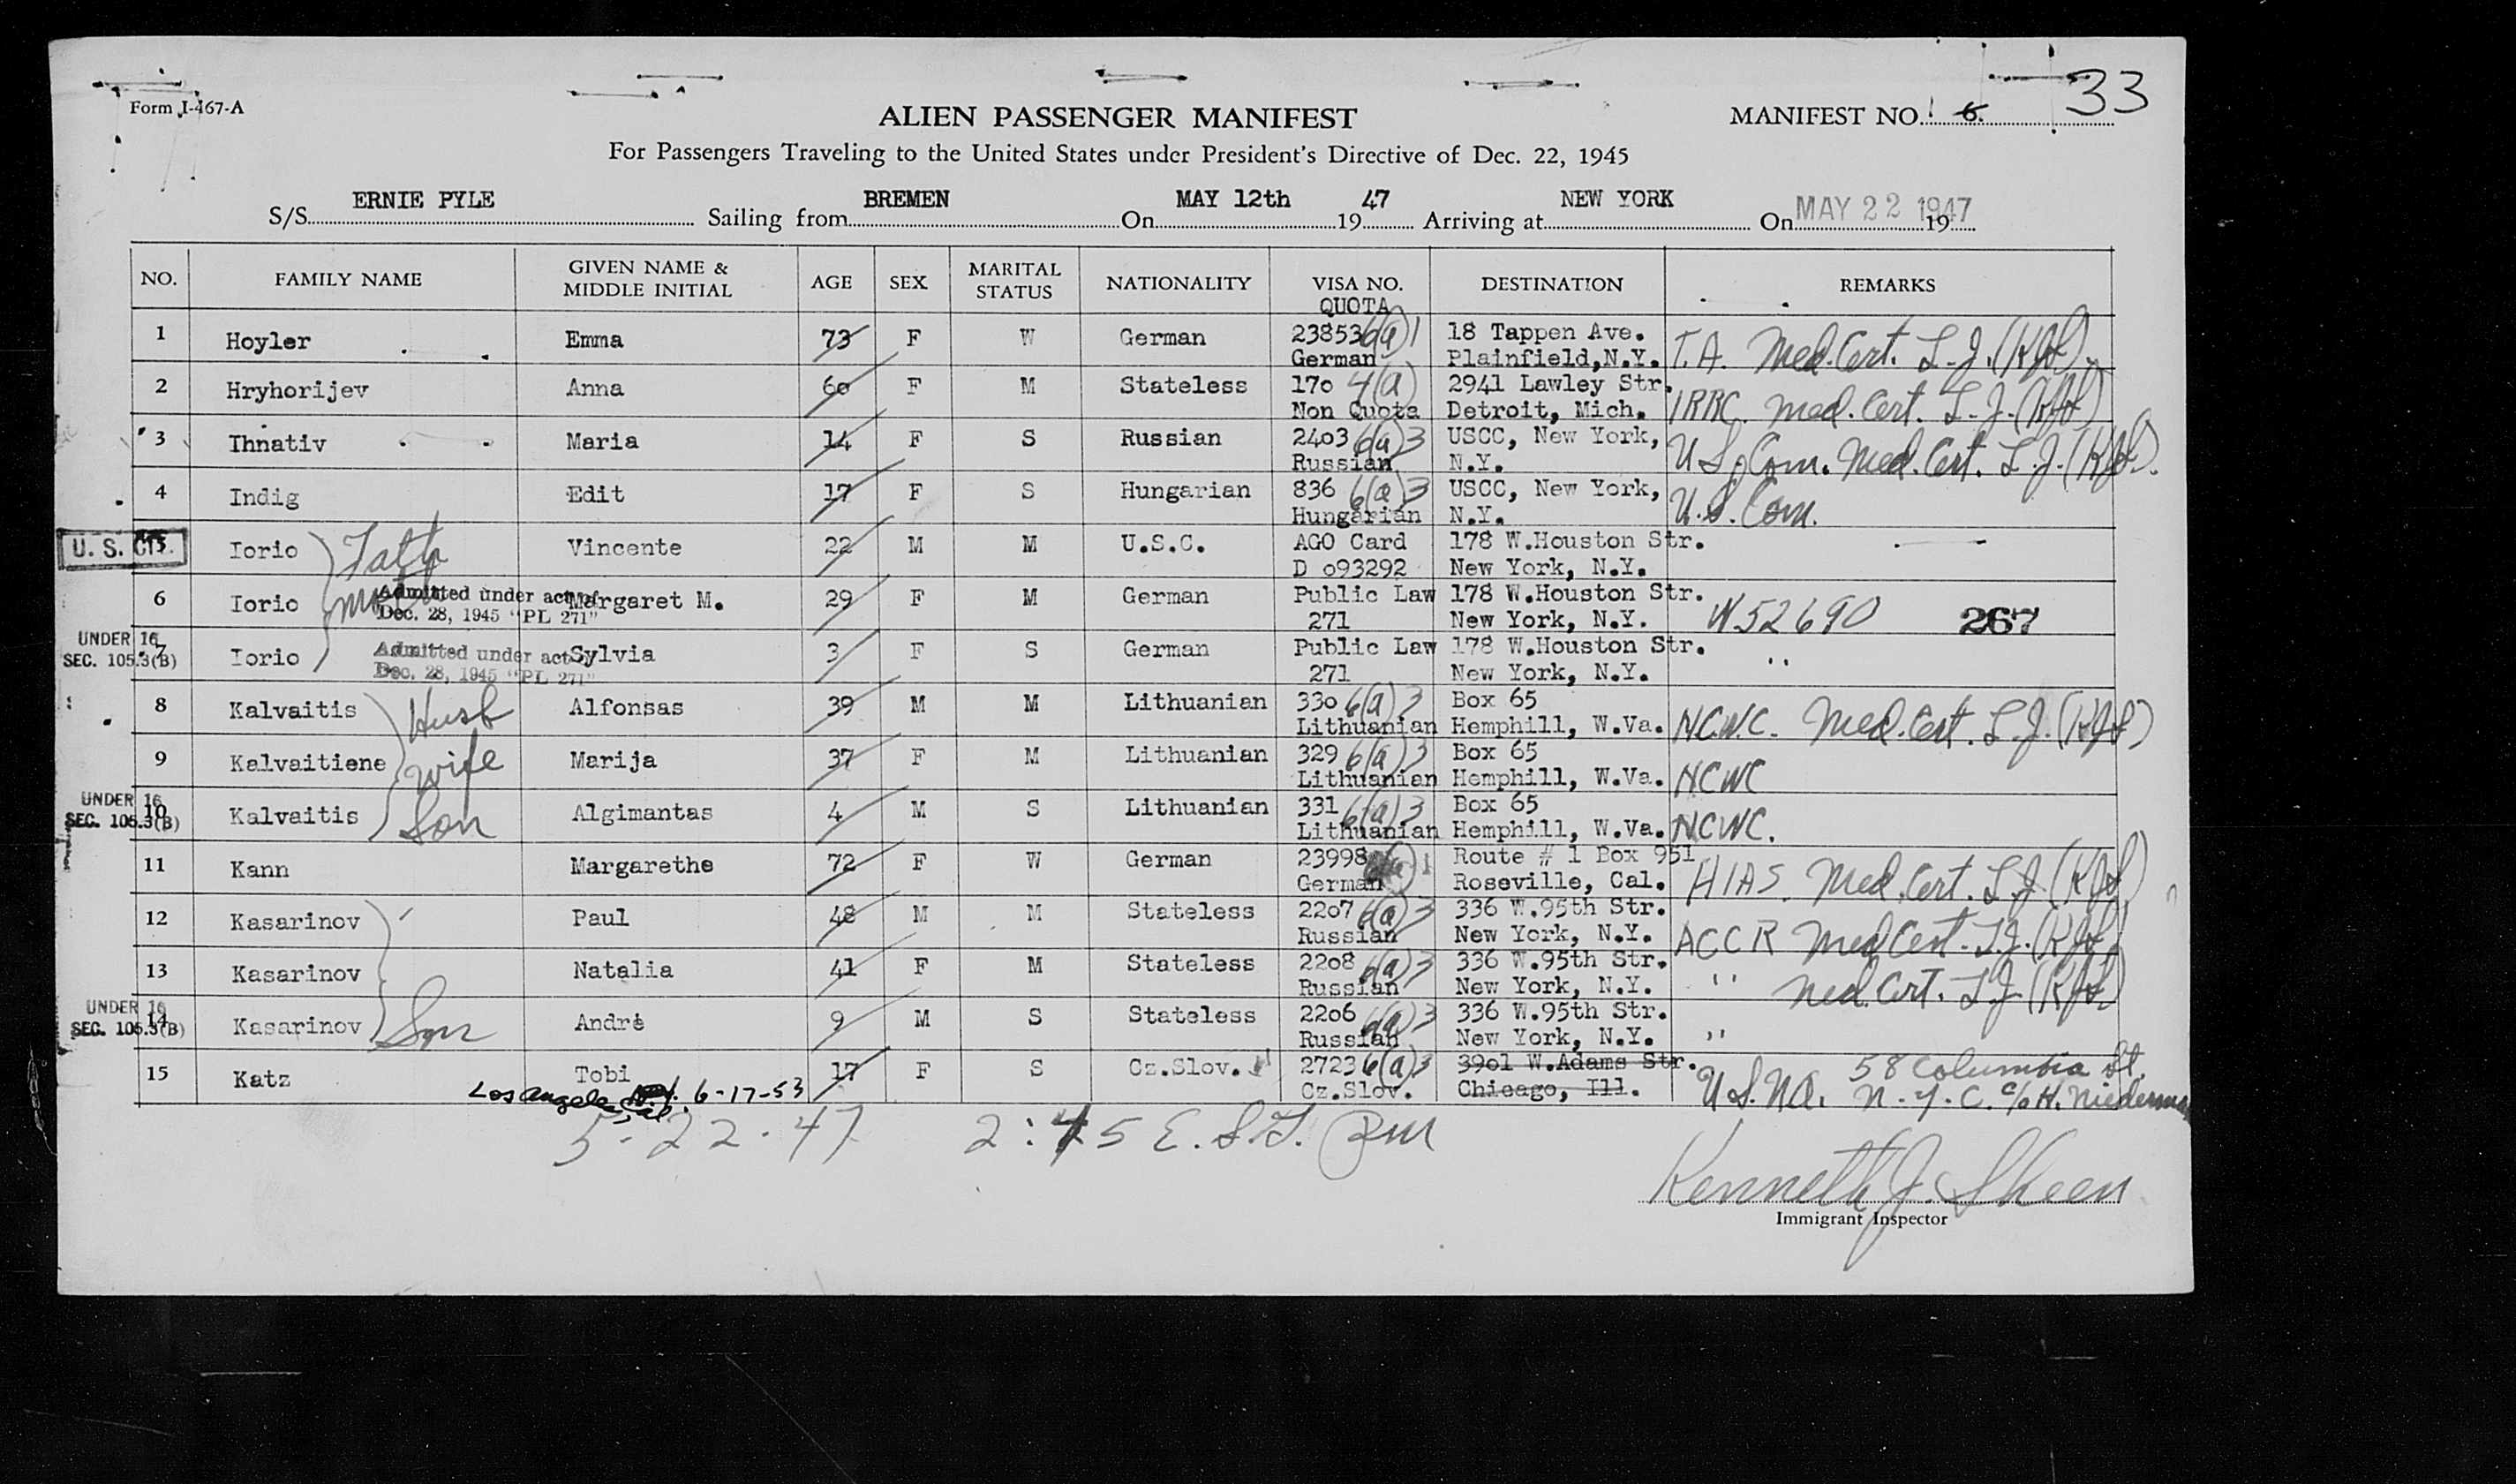 Form I-467-A
ALIEN PASSENGER MANIFEST
MANIFEST NO. 6. 33
For Passengers Traveling to the United States under President's Directive of Dec. 22, 1945
S/S ERNIE PYLE Sailing from BREMEN On MAY 12th 19 47 Arriving at NEW YORK On MAY 22 1947 19
NO. FAMILY NAME GIVEN NAME & MIDDLE INITIAL AGE SEX MARITAL STATUS NATIONALITY VISA NO. QUOTA DESTINATION REMARKS
1 Hoyler Emma 73 F W German 23853 6(a)1 18 Tappen Ave. T.A. Med. Cert. L.J. (KJS)
German Plainfield, N.Y.
2 Hryhorijev Anna 60 F M Stateless 170 4(a) 2941 Lawley Str. IRRC. Med. Cert. L.J. (KJS)
Non Quota Detroit, Mich.
3 Ihnativ Maria 14 F S Russian 2403 6(a)3 USCC, New York, U.S. Com. Med. Cert. L.J. (KJS).
Russian N.Y.
4 Indig Edit 17 F S Hungarian 836 6(a)3 USCC, New York, U.S. Com.
Hungarian N.Y.
U. S. CIT. 5 Iorio Vincente 22 M M U.S.C. AGO Card 178 W.Houston Str.
D 093292 New York, N.Y.
6 Iorio Admitted under act of Margaret M. 29 F M German Public Law 178 W.Houston Str. N52690 267
Dec. 28, 1945 "PL 271" 271 New York, N.Y.
UNDER 16 SEC. 105.3(B) 7 Iorio Admitted under act of Sylvia 3 F S German Public Law 178 W.Houston Str. "
Dec. 28, 1945 "PL 271" 271 New York, N.Y.
8 Kalvaitis Husb Alfonsas 39 M M Lithuanian 330 6(a)3 Box 65 NCWC. Med. Cert. L.J. (KJS)
Lithuanian Hemphill, W.Va.
9 Kalvaitiene wife Marija 37 F M Lithuanian 329 6(a)3 Box 65 NCWC
Lithuanian Hemphill, W.Va.
UNDER 16 SEC. 105.3(B) 10 Kalvaitis Son Algimantas 4 M S Lithuanian 331 6(a)3 Box 65 NCWC.
Lithuanian Hemphill, W.Va.
11 Kann Margarethe 72 F W German 23998 Route # 1 Box 951 HIAS. Med. Cert. L.J. (KJS)
German Roseville, Cal.
12 Kasarinov Paul 48 M M Stateless 2207 6(a)3 336 W.95th Str. ACCR Med Cert. L.J. (KJS)
Russian New York, N.Y.
13 Kasarinov Natalia 41 F M Stateless 2208 6(a)3 336 W.95th Str. " Med. Cert. L.J (KJS)
Russian New York, N.Y.
UNDER 16 SEC. 105.3(B) 14 Kasarinov Son Andrè 9 M S Stateless 2206 6(a)3 336 W.95th Str. "
Russian New York, N.Y.
15 Katz Tobi 17 F S Cz.Slov. 2723 6(a)3 3901 W.Adams Str. U.S.NA. 58 Columbia St.
Cz.Slov. Chicago, Ill. N.Y.C. c/o H. Niederman
Los Angeles, Cal. 6-17-53
5-22-47 2:45 E.S.T. PM
Kenneth J. Skeen
Immigrant Inspector